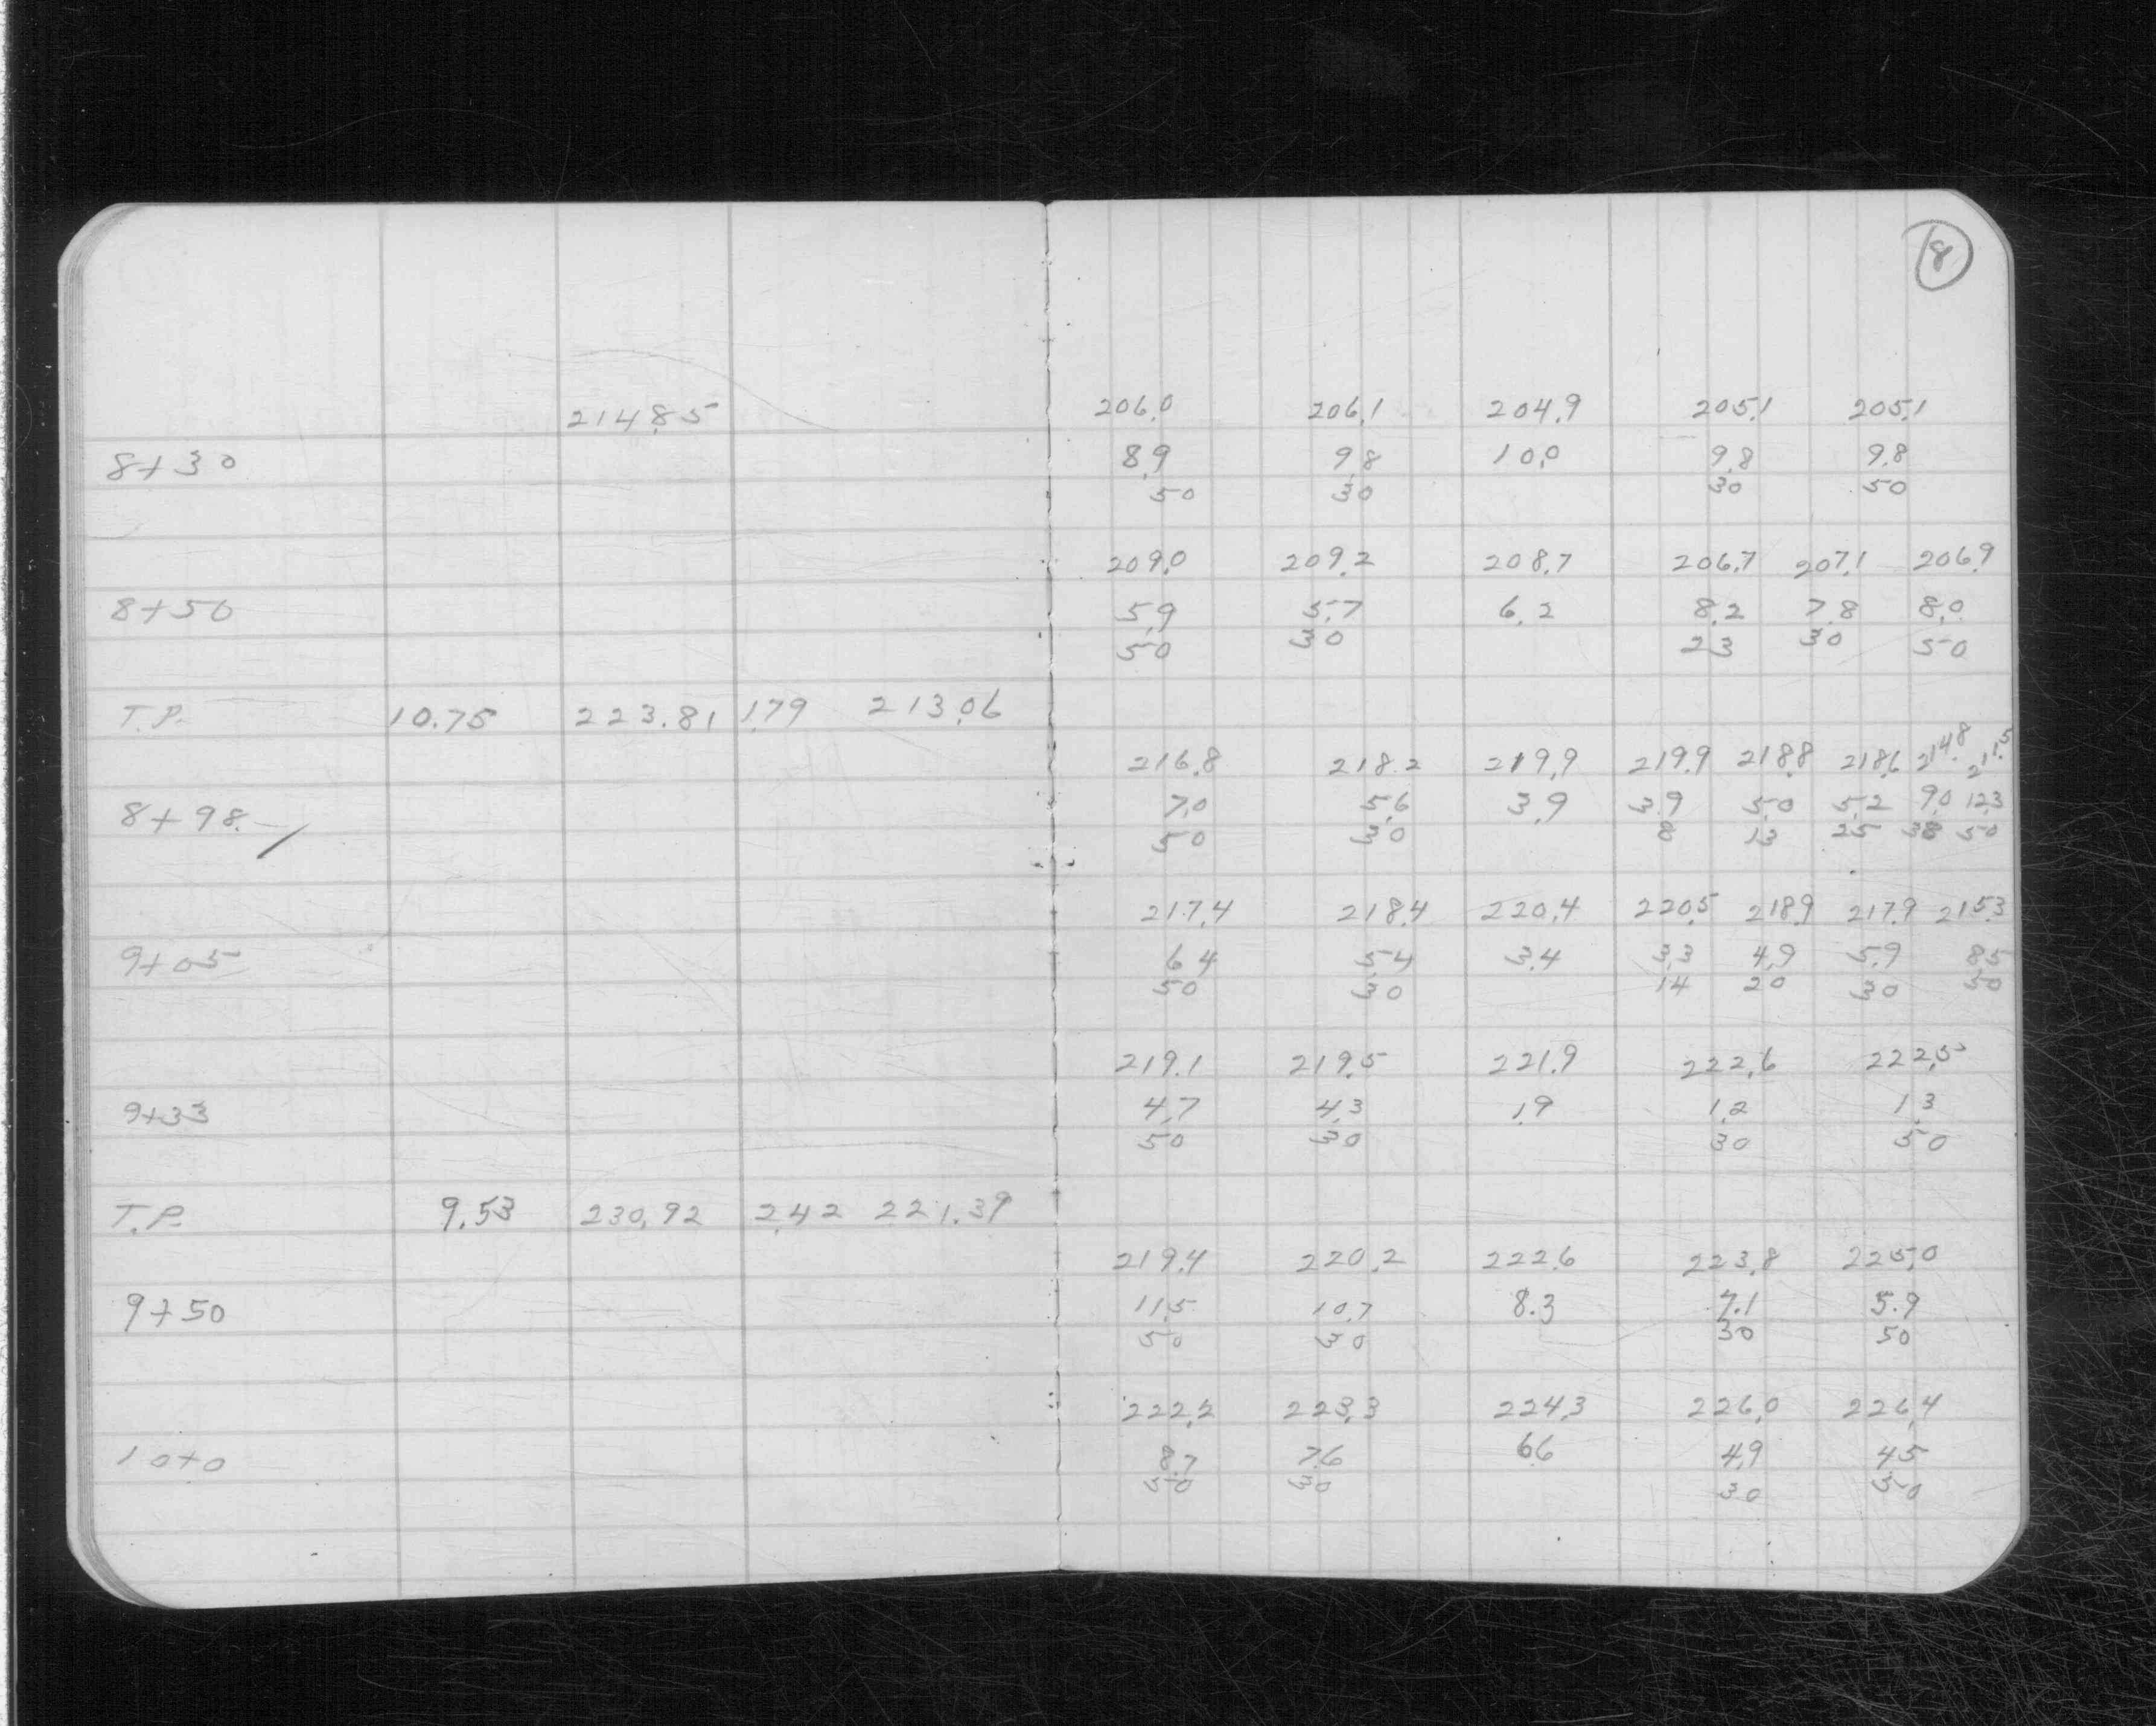 8
214.85 206.0 206.1 204.9 205.1 205.1
8+30 8.9 9.8 10.0 9.8 9.8
50 30 30 50
209.0 209.2 208.7 206.7 207.1 206.9
8+50 5.9 5.7 6.2 8.2 7.8 8.0
50 30 23 30 50
T.P. 10.75 223.81 1.79 213.06
216.8 218.2 219.9 219.9 218.8 218.6 214.8 211.5
8+98. 7.0 5.6 3.9 3.9 5.0 5.2 9.0 12.3
50 30 8 13 25 38 50
217.4 218.4 220.4 220.5 218.9 217.9 215.3
9+05 6.4 5.4 3.4 3.3 4.9 5.9 8.5
50 30 14 20 30 50
219.1 219.5 221.9 222.6 222.5
9+33 4.7 4.3 1.9 1.2 1.3
50 30 30 50
T.P. 9.53 230.92 2.42 221.39
219.4 220.2 222.6 223.8 225.0
9+50 11.5 10.7 8.3 7.1 5.9
50 30 30 50
222.2 223.3 224.3 226.0 226.4
10+0 8.7 7.6 6.6 4.9 4.5
50 30 30 50